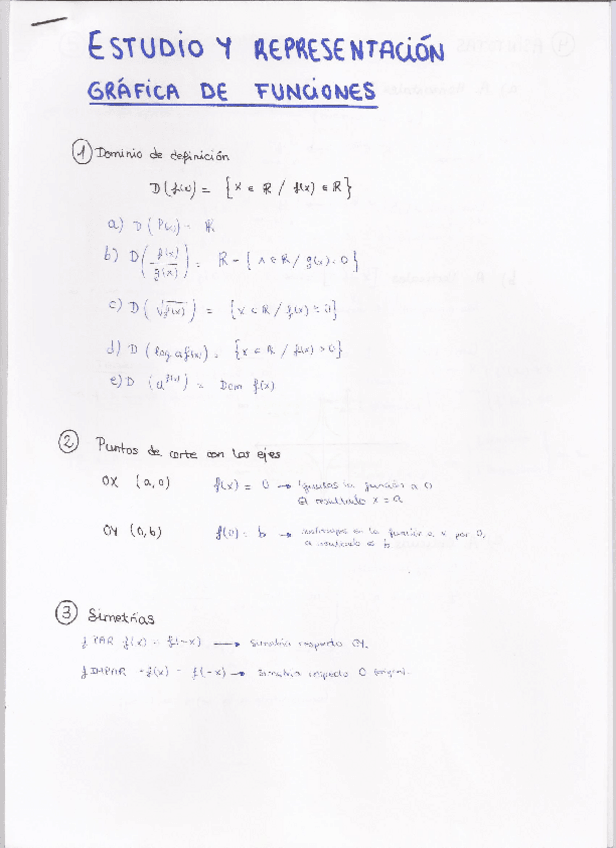 ESTUDIO Y REPRESENTACIÓN
GRÁFICA DE FUNCIONES
1 Dominio de definición
D(f(x)) = {x ∈ R / f(x) ∈ R}
a) D(P(x)) = R
b) D(f(x)/g(x)) = R - {x ∈ R / g(x) = 0}
c) D(√f(x)) = {x ∈ R / f(x) ≥ 0}
d) D(log a f(x)) = {x ∈ R / f(x) > 0}
e) D (a^f(x)) = Dom f(x)
2 Puntos de corte con los ejes
OX (a,0) f(x) = 0 → igualas la función a 0
El resultado x = a
OY (0,b) f(0) = b → en la función a x por 0,
resultado b
3 Simetrías
f PAR f(x) = f(-x) → Simetría respecto OY.
f IMPAR -f(x) = f(-x) → Simetría respecto O (origen).